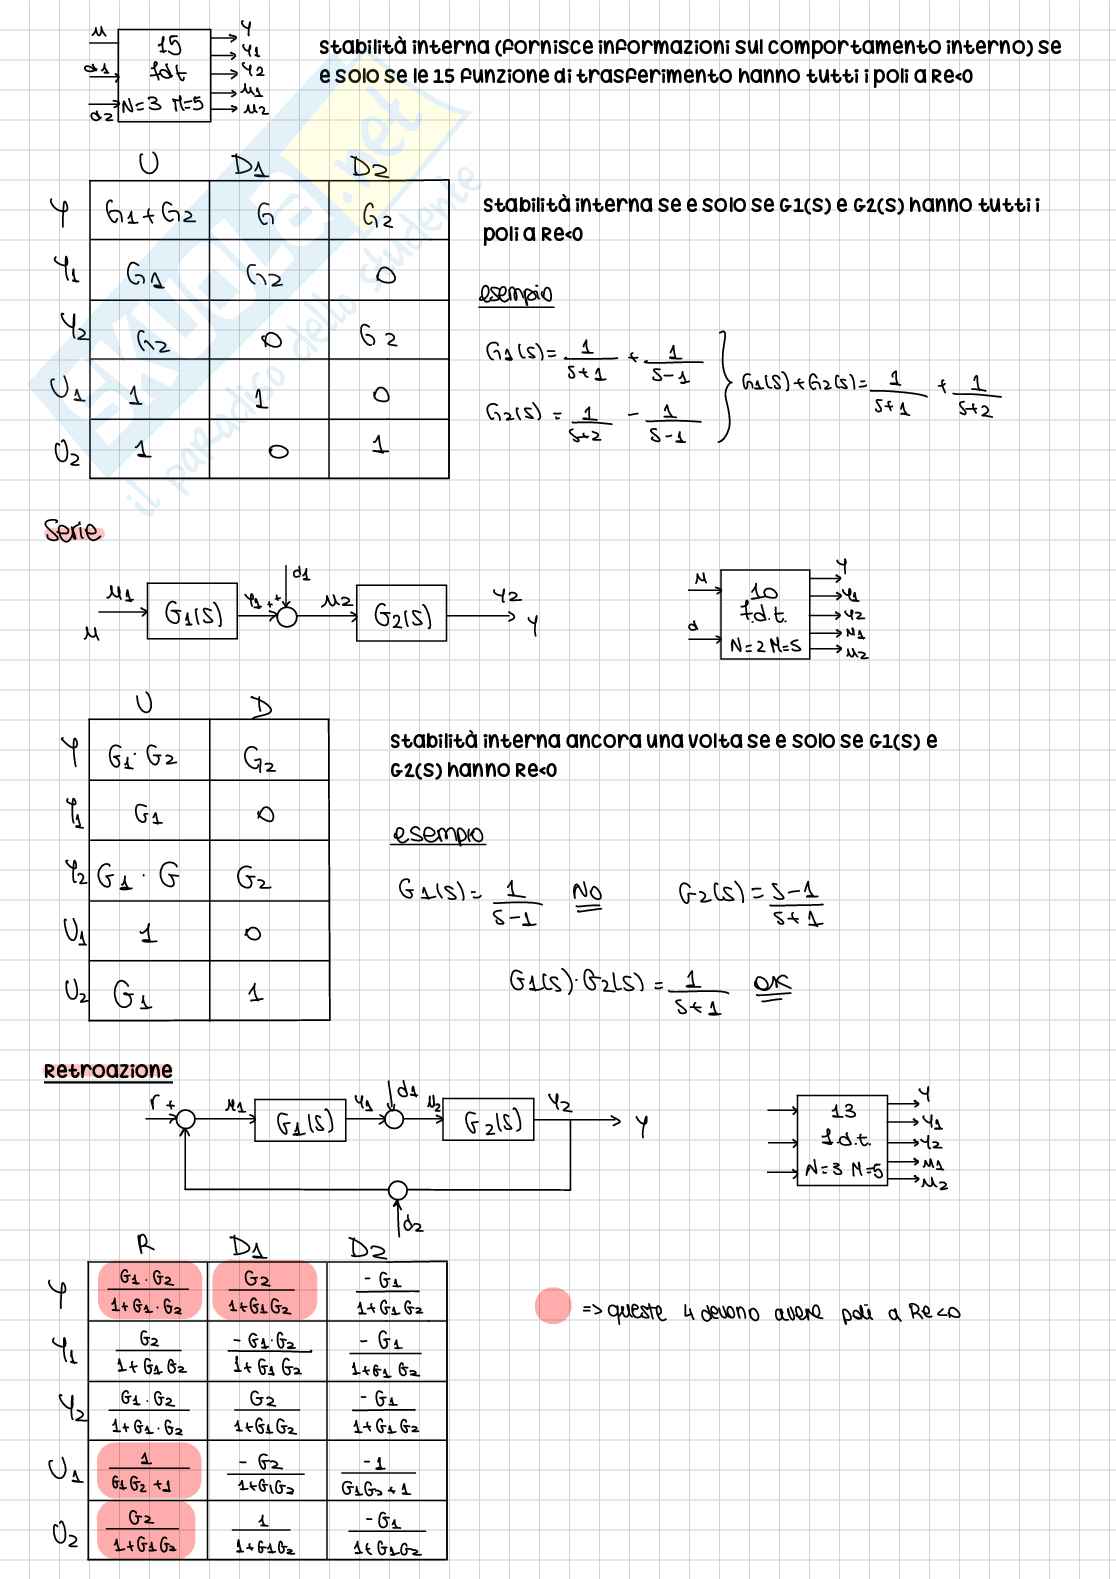 u 15 y
d1 f.d.t y1
y2
d2 N=3 M=5 u1
u2
Stabilità interna (fornisce informazioni sul comportamento interno) se
e solo se le 15 funzione di trasferimento hanno tutti i poli a Re<0
U D1 D2
Y G1+G2 G G2
Y1 G1 G2 0
Y2 G2 0 G2
U1 1 1 0
U2 1 0 1
SKUOLA.net
il paradiso dello studente
Stabilità interna se e solo se G1(S) e G2(S) hanno tutti i
poli a Re<0
esempio
G1(s)= 1/(s+1) + 1/(s-1)
G2(s) = 1/(s+2) - 1/(s-1)
G1(s)+G2(s)= 1/(s+1) + 1/(s+2)
Serie
u u1 G1(s) y1 + + d1 u2 G2(s) y2 y
u 10 y
f.d.t. y1
y2
d N=2 M=5 u1
u2
U D
Y G1·G2 G2
Y1 G1 0
Y2 G1·G G2
U1 1 0
U2 G1 1
Stabilità interna ancora una volta se e solo se G1(S) e
G2(S) hanno Re<0
esempio
G1(s)= 1/(s-1) NO G2(s)= (s-1)/(s+1)
G1(s)·G2(s) = 1/(s+1) OK
Retroazione
r + u1 G1(s) y1 d1 u2 G2(s) y2 y
d2
13 y
f.d.t. y1
y2
N=3 M=5 u1
u2
R D1 D2
Y G1·G2/(1+G1·G2) G2/(1+G1G2) -G1/(1+G1G2)
Y1 G2/(1+G1G2) -G1·G2/(1+G1G2) -G1/(1+G1G2)
Y2 G1·G2/(1+G1·G2) G2/(1+G1G2) -G1/(1+G1G2)
U1 1/(G1G2+1) -G2/(1+G1G2) -1/(G1G2+1)
U2 G2/(1+G1G2) 1/(1+G1G2) -G1/(1+G1G2)
=> queste 4 devono avere poli a Re<0